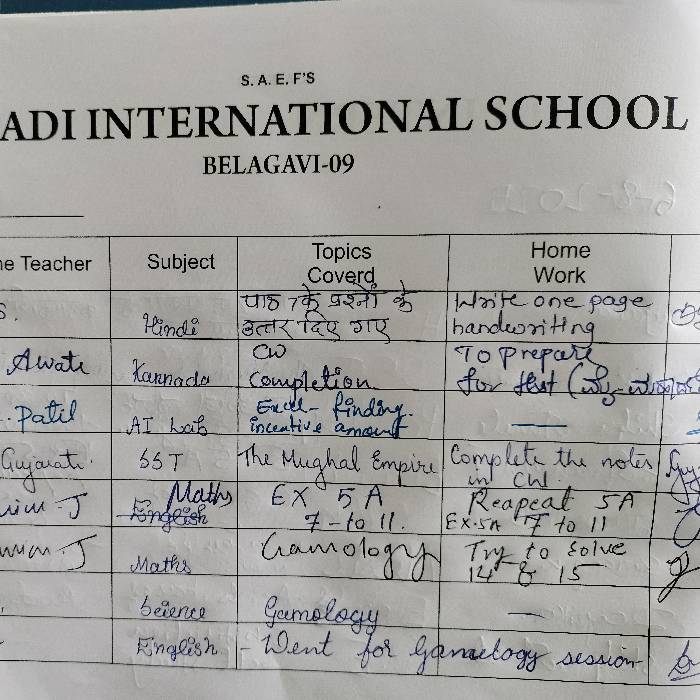 S. A. E. F'S
ADI INTERNATIONAL SCHOOL
BELAGAVI-09
Teacher Subject Topics Coverd Home Work
Hindi पाठ 7 के प्रश्नों के Write one page
उत्तर दिए गए handwriting
Awati Kannada CW To prepare
Completion for test
Patil AI Lab Excel- finding.
incentive amount
Gujarati. SST The Mughal Empire Complete the notes
in CW.
J Maths EX 5A Reapeat 5A
English 7 - to 11. EX.5A 7 to 11
J Maths Gamology Try to solve
14 & 15
Science Gamology —
English - Went for Gamelogy session